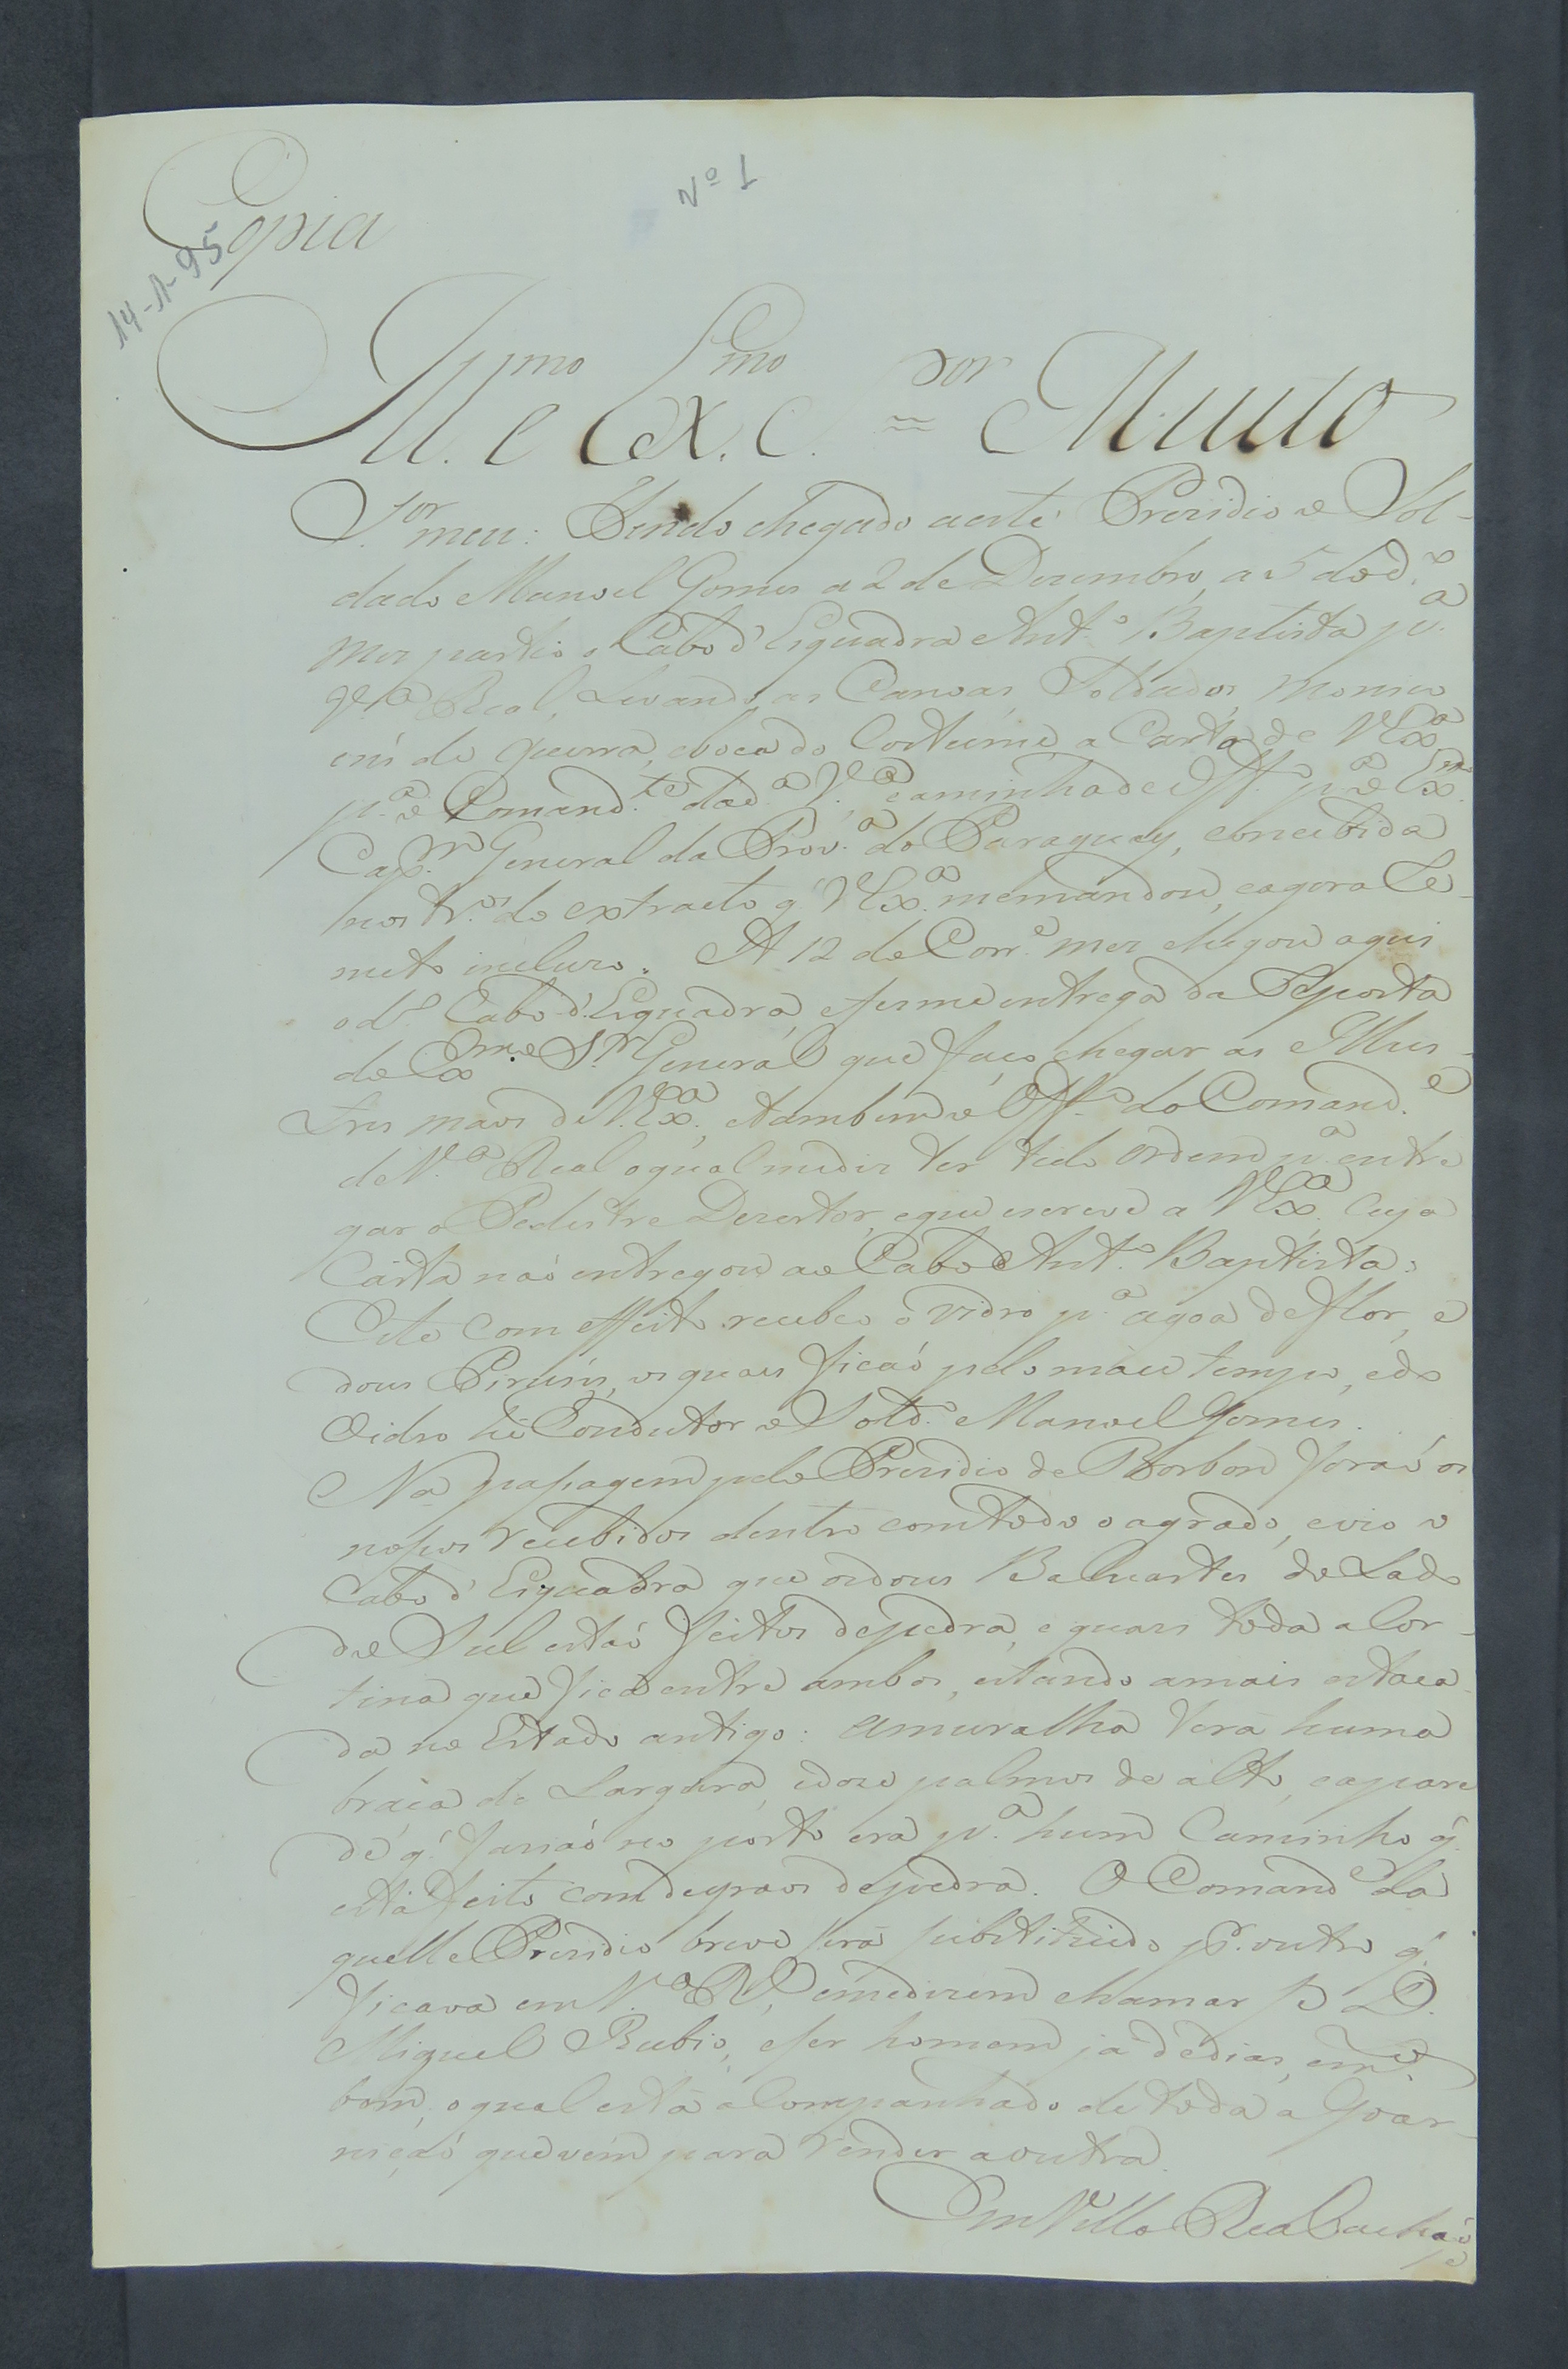 Nº 1
Copia
14-1-95
Ill.mo e Ex.mo Sor = Muito
S.or meu: Sendo chegado a este Prezidio o Sol-
dado Manoel Gomes a 2 de Dezembro, a 5 do d.o
mez partio o Cabo d'Esquadra Ant.o Baptista p.a
V.a Real, Levando as Canoas, Soldados, monico
ens de guerra, e boca do Costume a Carta de V.Ex.a
p.a o Comand.te da d.a V.a e a minha de Off.o p.a o Ex.mo
Cap.m General da Prov.a do Paraguay, concebida
nos tr.os do extracto q' V.Ex.a me mandou, e agora Re-
meto incluzo. A 12 do Corr.e mez chegou aqui
o d.o Cabo d'Esquadra, e fesme entrega da Reposta
do Ex.mo S.r General que faço chegar as Illus-
tres maos de V.Ex.a, e tambem o Off.o do Comand.e
de V.a Real o qual me diz ter tido ordem p.a entre
gar o Pedestre Dezertor, e que escreve a V.Ex.a Cuja
Carta naó entregou ao Cabo Ant.o Baptista:
Este com effeito recebeo o vidro p.a agoa de flor, e
dous Pirúns, os quaes ficaó pelo máu tempo, e do
Vidro hé Condutor o Sold.o Manoel Gomes.
Na passagem pelo Prezidio de Borbon foraó os
nossos recebidos dentro com todo o agrado, e vio o
Cabo d'Esquadra que os dous Baluartes do Lado
do Sul estaó feitos de pedra, e quazi toda a Cor-
tina que fica entre ambos, estando a mais estaca
da no Estado antigo: a muralha terá huma
braça de Largura, e doze palmos de alto, e a pare
de q' faziaó no porto era p.a hum Caminho q'
está feito com degraos de pedra. O Comand.e da
quelle Prezidio breve será substituido p.r outro q'
ficava em V.a R.l, e me dizem chamar se D.
Miguel Rubio, e ser homem já de dias, e m.to
bom, o qual está acompanhado de toda a Goar-
niçaó que vem para render a outra.
Em Villa Real achaó
se